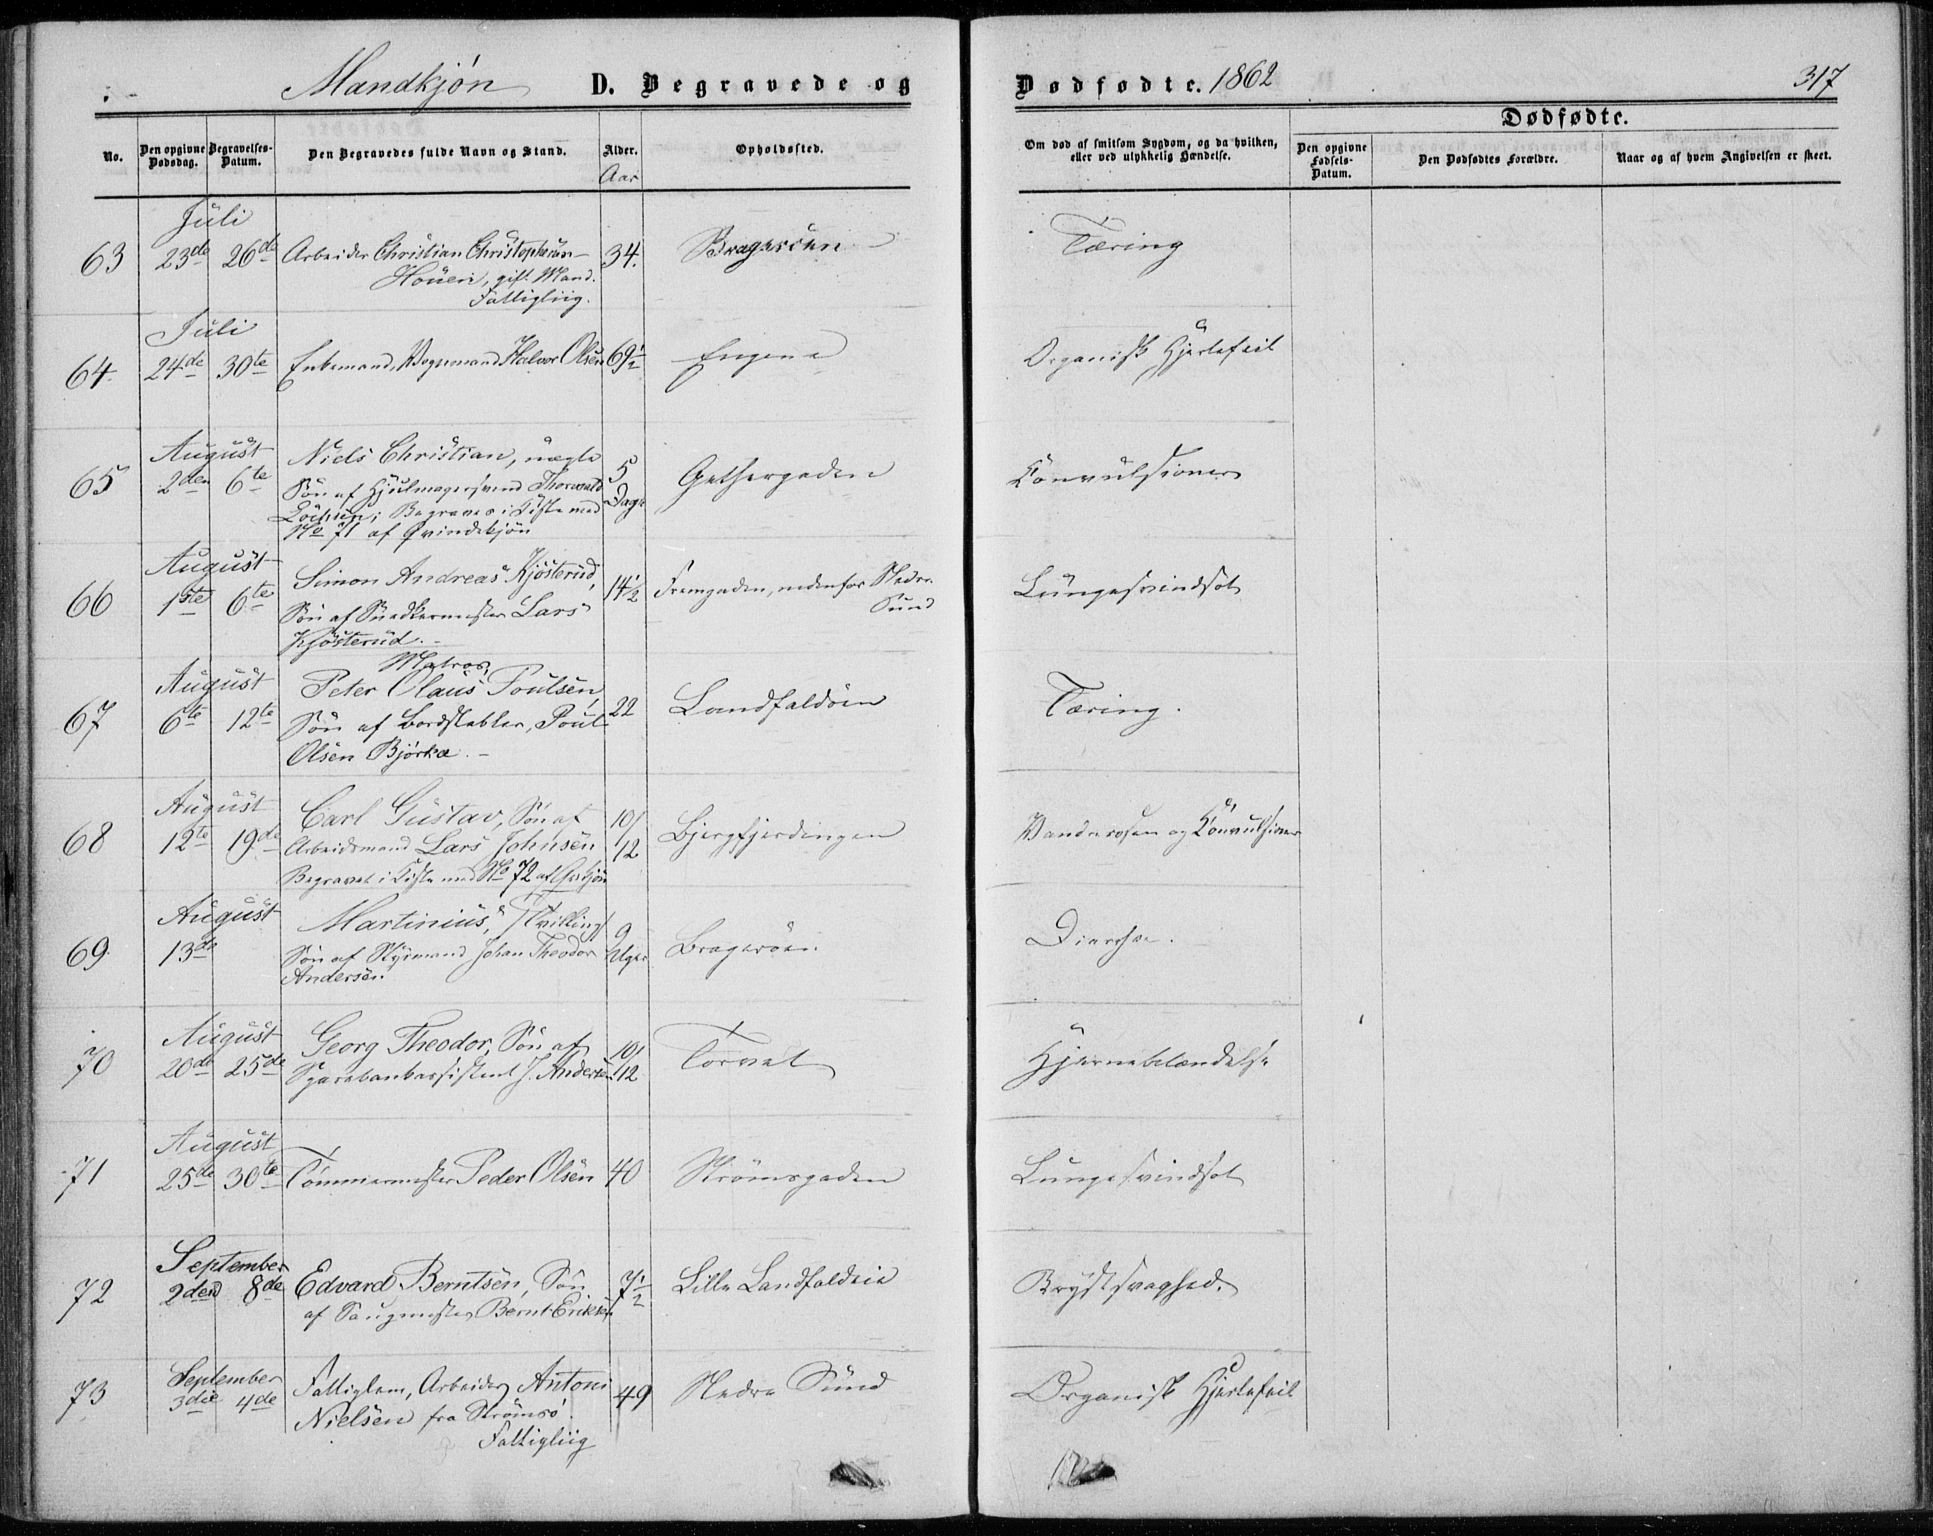 Mandkjøn D. Begravede og
Dødfødte. 1862 317
No. Den opgivne Dødsdag. Begravelses-Datum. Den Begravedes fulde Navn og Stand. Alder. Opholdssted.
Aar
Om død af smitsom Sygdom, og da hvilken, eller ved ulykkelig Hændelse.
Dødfødte.
Den opgivne Fødsels-Datum. Den Dødfødtes Forældre. Naar og af hvem Angivelsen er skeet.
Juli
63 23de 26de Arbeider Christian Christophersen 34. Bragerøen Tæring
Houen, gift Mand.
Fattigliig.
Juli
64 24de 30te Enkemand, Vognmand Halvor Olsen 69½ Engene Organisk Hjertefeil
August
65 2den 6te Niels Christian, uægte 5 Dage Gethergaden Convulsioner
Søn af Hjulmagersvend Thorvald
Begraves i Kiste med
No 71 af Qvindekjøn
August
66 1ste 6te Simon Andreas Kjøsterud, 14½ Fremgaden, nedenfor Nedre Sund Lungesvindsot
Søn af Snedkermester Lars
Kjøsterud.
Matros,
August
67 6te 12te Peter Olaus Poulsen, 22 Landfaldøen Tæring.
Søn af Bordstabler, Poul
Olsen Bjørka.
August
68 12te 19de Carl Gustav, Søn af 10/12 Bjergfjerdingen Vandrosen og Convulsioner
Arbeidsmand Lars Johnsen
Begravet i Kiste med No 72 af Qvkjøn
August
69 13de Martinius, Tvilling 9 Uger Bragerøen Diarrhe.
Søn af Styrmand Johan Theodor
Andersen
August
70 20de 25de Georg Theodor, Søn af 10/12 Torvet Hjernebetændelse
Sparebankassistent J. Andersen
August
71 25de 30te Tømmermester Peder Olsen 40 Strømsgaden Lungesvindsot
September
72 2den 8de Edvard Berntsen, Søn 7½ Lille Landfaldøie Brystsvaghed.
af Saugmester Bernt Eriksen
September
73 3die 4de Fattiglem, Arbeider Antoni 49 Nedre Sund Organisk Hjertefeil
Nielsen fra Strømsø.
Fattigliig